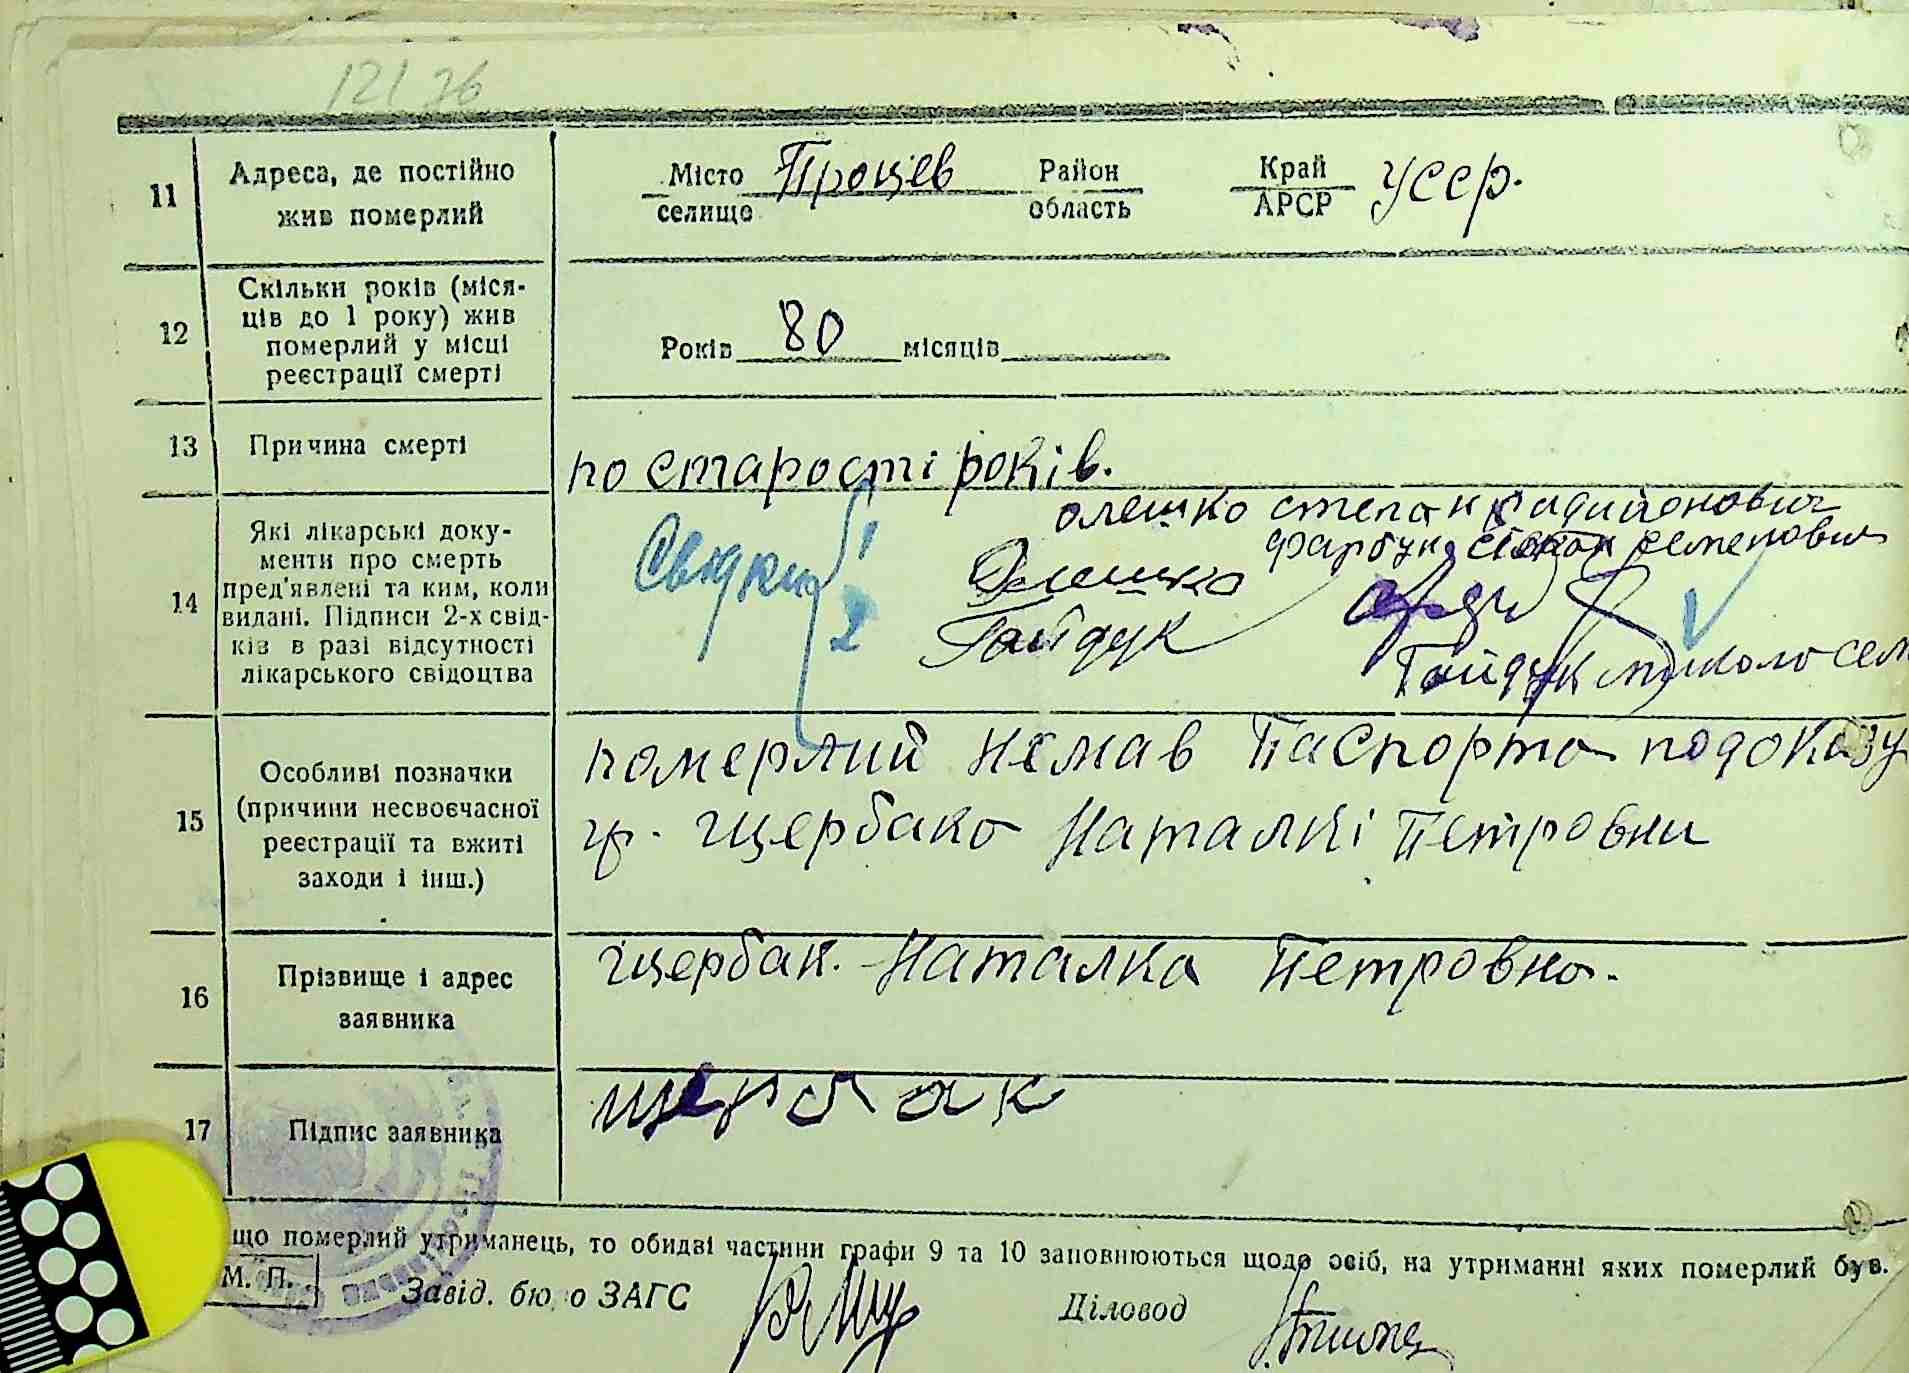 12/76
11 Адреса, де постійно жив померлий Місто селище Процев Район область Край АРСР УССР.
12 Скільки років (міся-
ців до 1 року) жив
померлий у місці
реєстрації смерті
Років 80 місяців
13 Причина смерті по старості років.
14 Які лікарські доку-
менти про смерть
пред'явлені та ким, коли
видані. Підписи 2-х свід-
ків в разі відсутності
лікарського свідоцтва
Свідки 1
2
олешко степан
семенович
Олешко
Гайдук
Гайдук миколо сем
15 Особливі позначки
(причини несвоєчасної
реєстрації та вжиті
заходи і інш.)
померлий немав паспорта подоказу
гр. щербако Наталкі Петровни
16 Прізвище і адрес
заявника
щербак. Наталка Петровна.
17 Підпис заявника щербак
що померлий утриманець, то обидві частини графи 9 та 10 заповнюються щодо осіб, на утриманні яких померлий був.
М. П. Завід. бюро ЗАГС Діловод